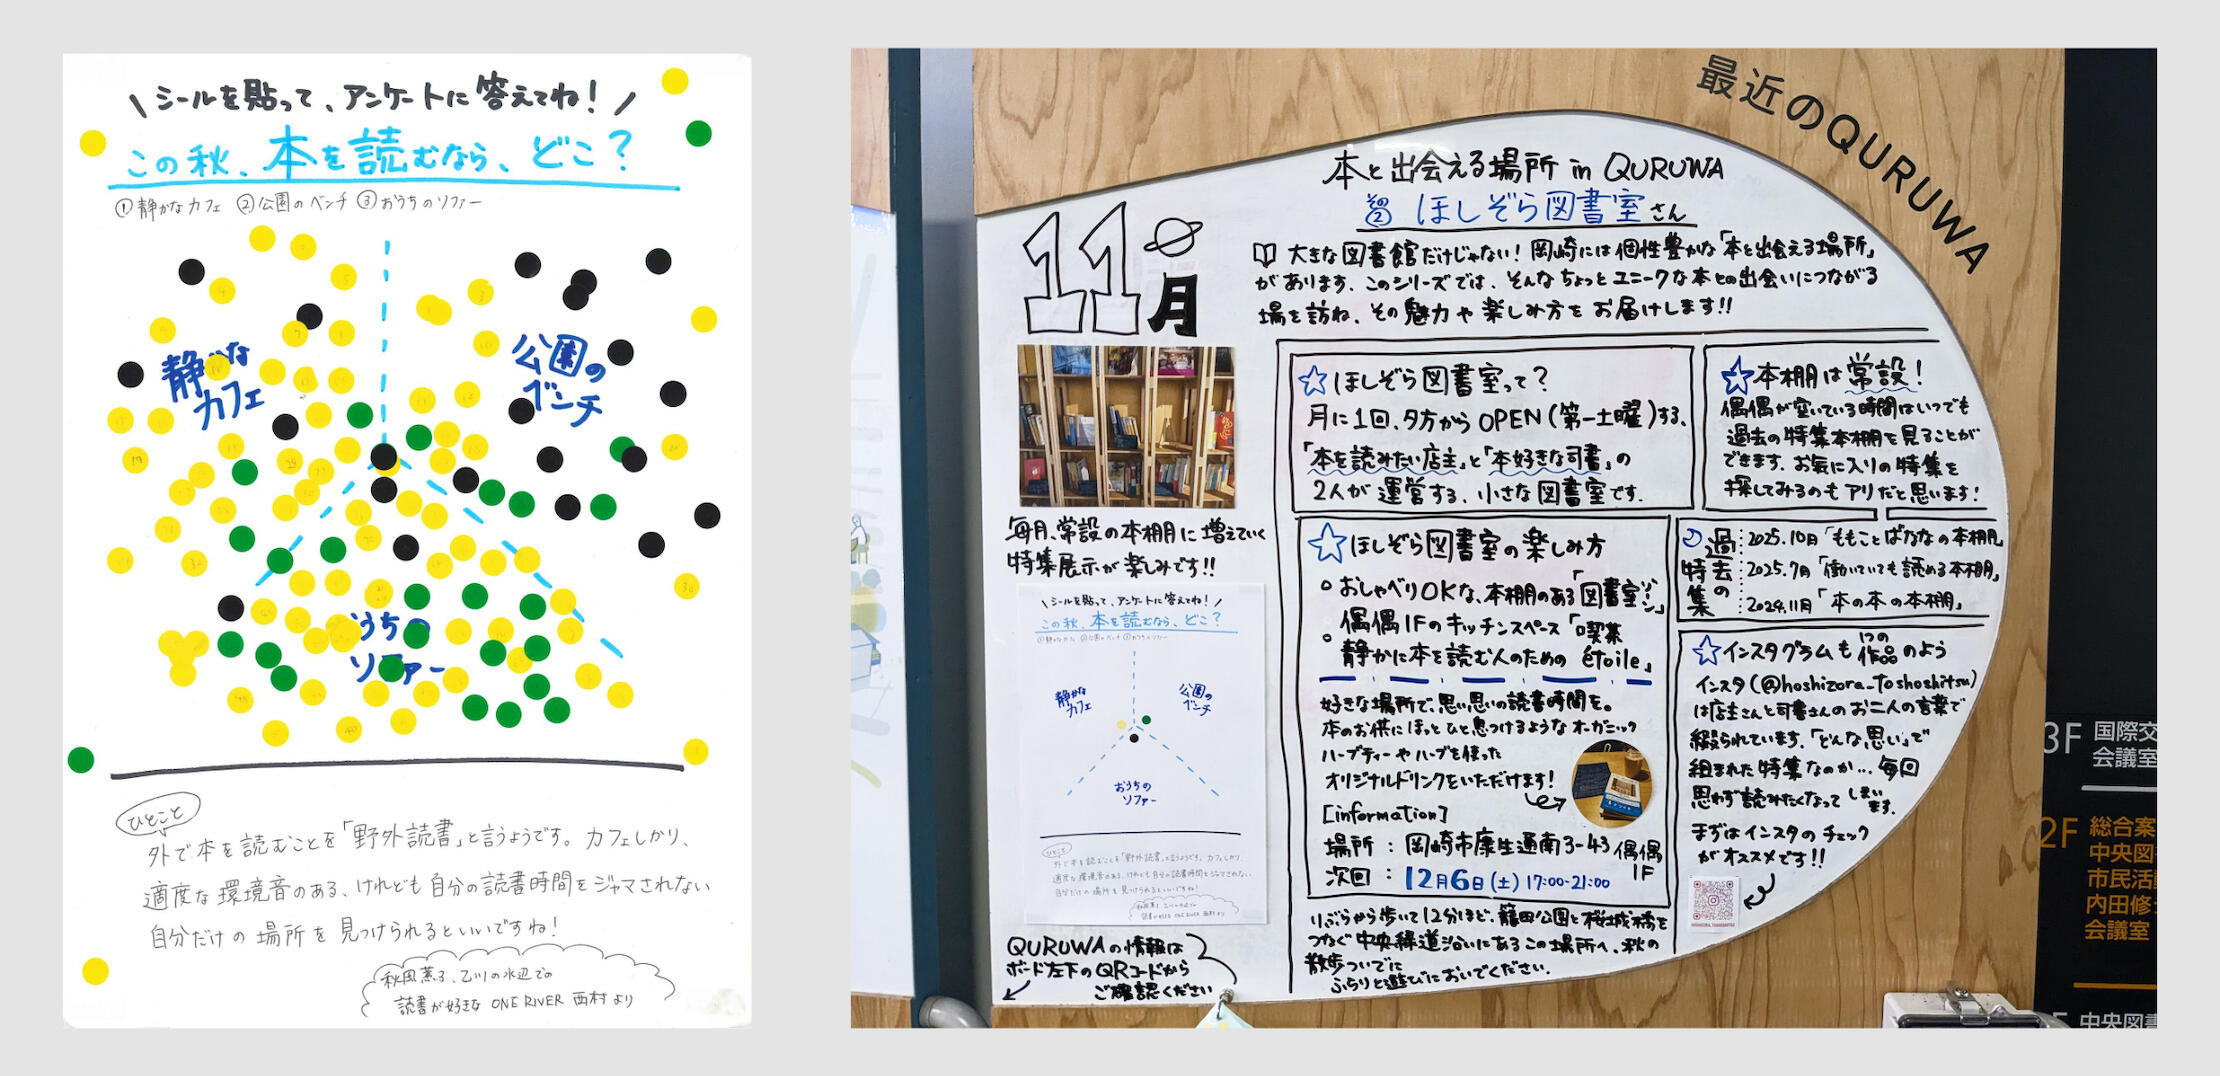 \ シールを貼って、アンケートに答えてね! /
この秋、本を読むなら、どこ?
①静かなカフェ ②公園のベンチ ③おうちのソファー
静かな
カフェ
公園の
ベンチ
うちの
ソファー
ひとこと
外で本を読むことを「野外読書」と言うようです。カフェしかり、
適度な環境音のある、けれども自分の読書時間をジャマされない
自分だけの場所を見つけられるといいですね!
秋風薫る、乙川の水辺での
読書が好きな ONE RIVER 西村より
最近のQURUWA
11月
本と出会える場所 in QURUWA
その② ほしぞら図書室さん
大きな図書館だけじゃない!岡崎には個性豊かな「本と出会える場所」
があります。このシリーズでは、そんなちょっとユニークな本との出会いにつながる
場を訪ね、その魅力や楽しみ方をお届けします!!
毎月、常設の本棚に増えていく
特集展示が楽しみです!!
\ シールを貼って、アンケートに答えてね! /
この秋、本を読むなら、どこ?
①静かなカフェ ②公園のベンチ ③おうちのソファー
静かな
カフェ
公園の
ベンチ
おうちの
ソファー
ひとこと
外で本を読むことを「野外読書」と言うようです。カフェしかり、
適度な環境音のある、けれども自分の読書時間をジャマされない
自分だけの場所を見つけられるといいですね!
秋風薫る、乙川の水辺での
読書が好きな ONE RIVER 西村より
QURUWAの情報は
ボード左下のQRコードから
ご確認ください
☆ほしぞら図書室って?
月に1回、夕方からOPEN(第一土曜)する、
「本を読みたい店主」と「本好きな司書」の
2人が運営する、小さな図書室です。
☆本棚は常設!
偶偶が空いている時間はいつでも
過去の特集本棚を見ることが
できます。お気に入りの特集を
探してみるのもアリだと思います!
☆ほしぞら図書室の楽しみ方
○おしゃべりOKな、本棚のある「図書室ゾーン」
○偶偶1Fのキッチンスペース「喫茶
静かに本を読む人のための étoile」
好きな場所で、思い思いの読書時間を。
本のお供にほっとひと息つけるようなオーガニック
ハーブティーやハーブを使った
オリジナルドリンクをいただけます!
[information]
場所:岡崎市康生通南3-43 偶偶1F
次回:12月6日(土)17:00-21:00
過去の特集
2025.10月「ももことばななの本棚」
2025.7月「働いていても読める本棚」
2024.11月「本の本の本棚」
☆インスタグラムも1つの作品のよう
インスタ(@hoshizora_toshoshitsu)
は店主さんと司書さんのお二人の言葉で
綴られています。「どんな思い」で
組まれた特集なのか…毎回
思わず読みたくなってしまいます。
まずはインスタのチェック
がオススメです!!
りぶらから歩いて12分ほど、籠田公園と桜城橋を
つなぐ中央緑道沿いにあるこの場所へ、秋の
散歩ついでに
ふらりと遊びにおいでください。
3F 国際交
会議室
2F 総合案
中央図
市民活
内田修
会議室
中央図